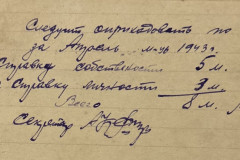 Следует оприходовать по
за Апрель м-ц 1943 г.
Справку собственности 5 м.
Справку личности 3 м.
Всего 8 м.
Секретарь